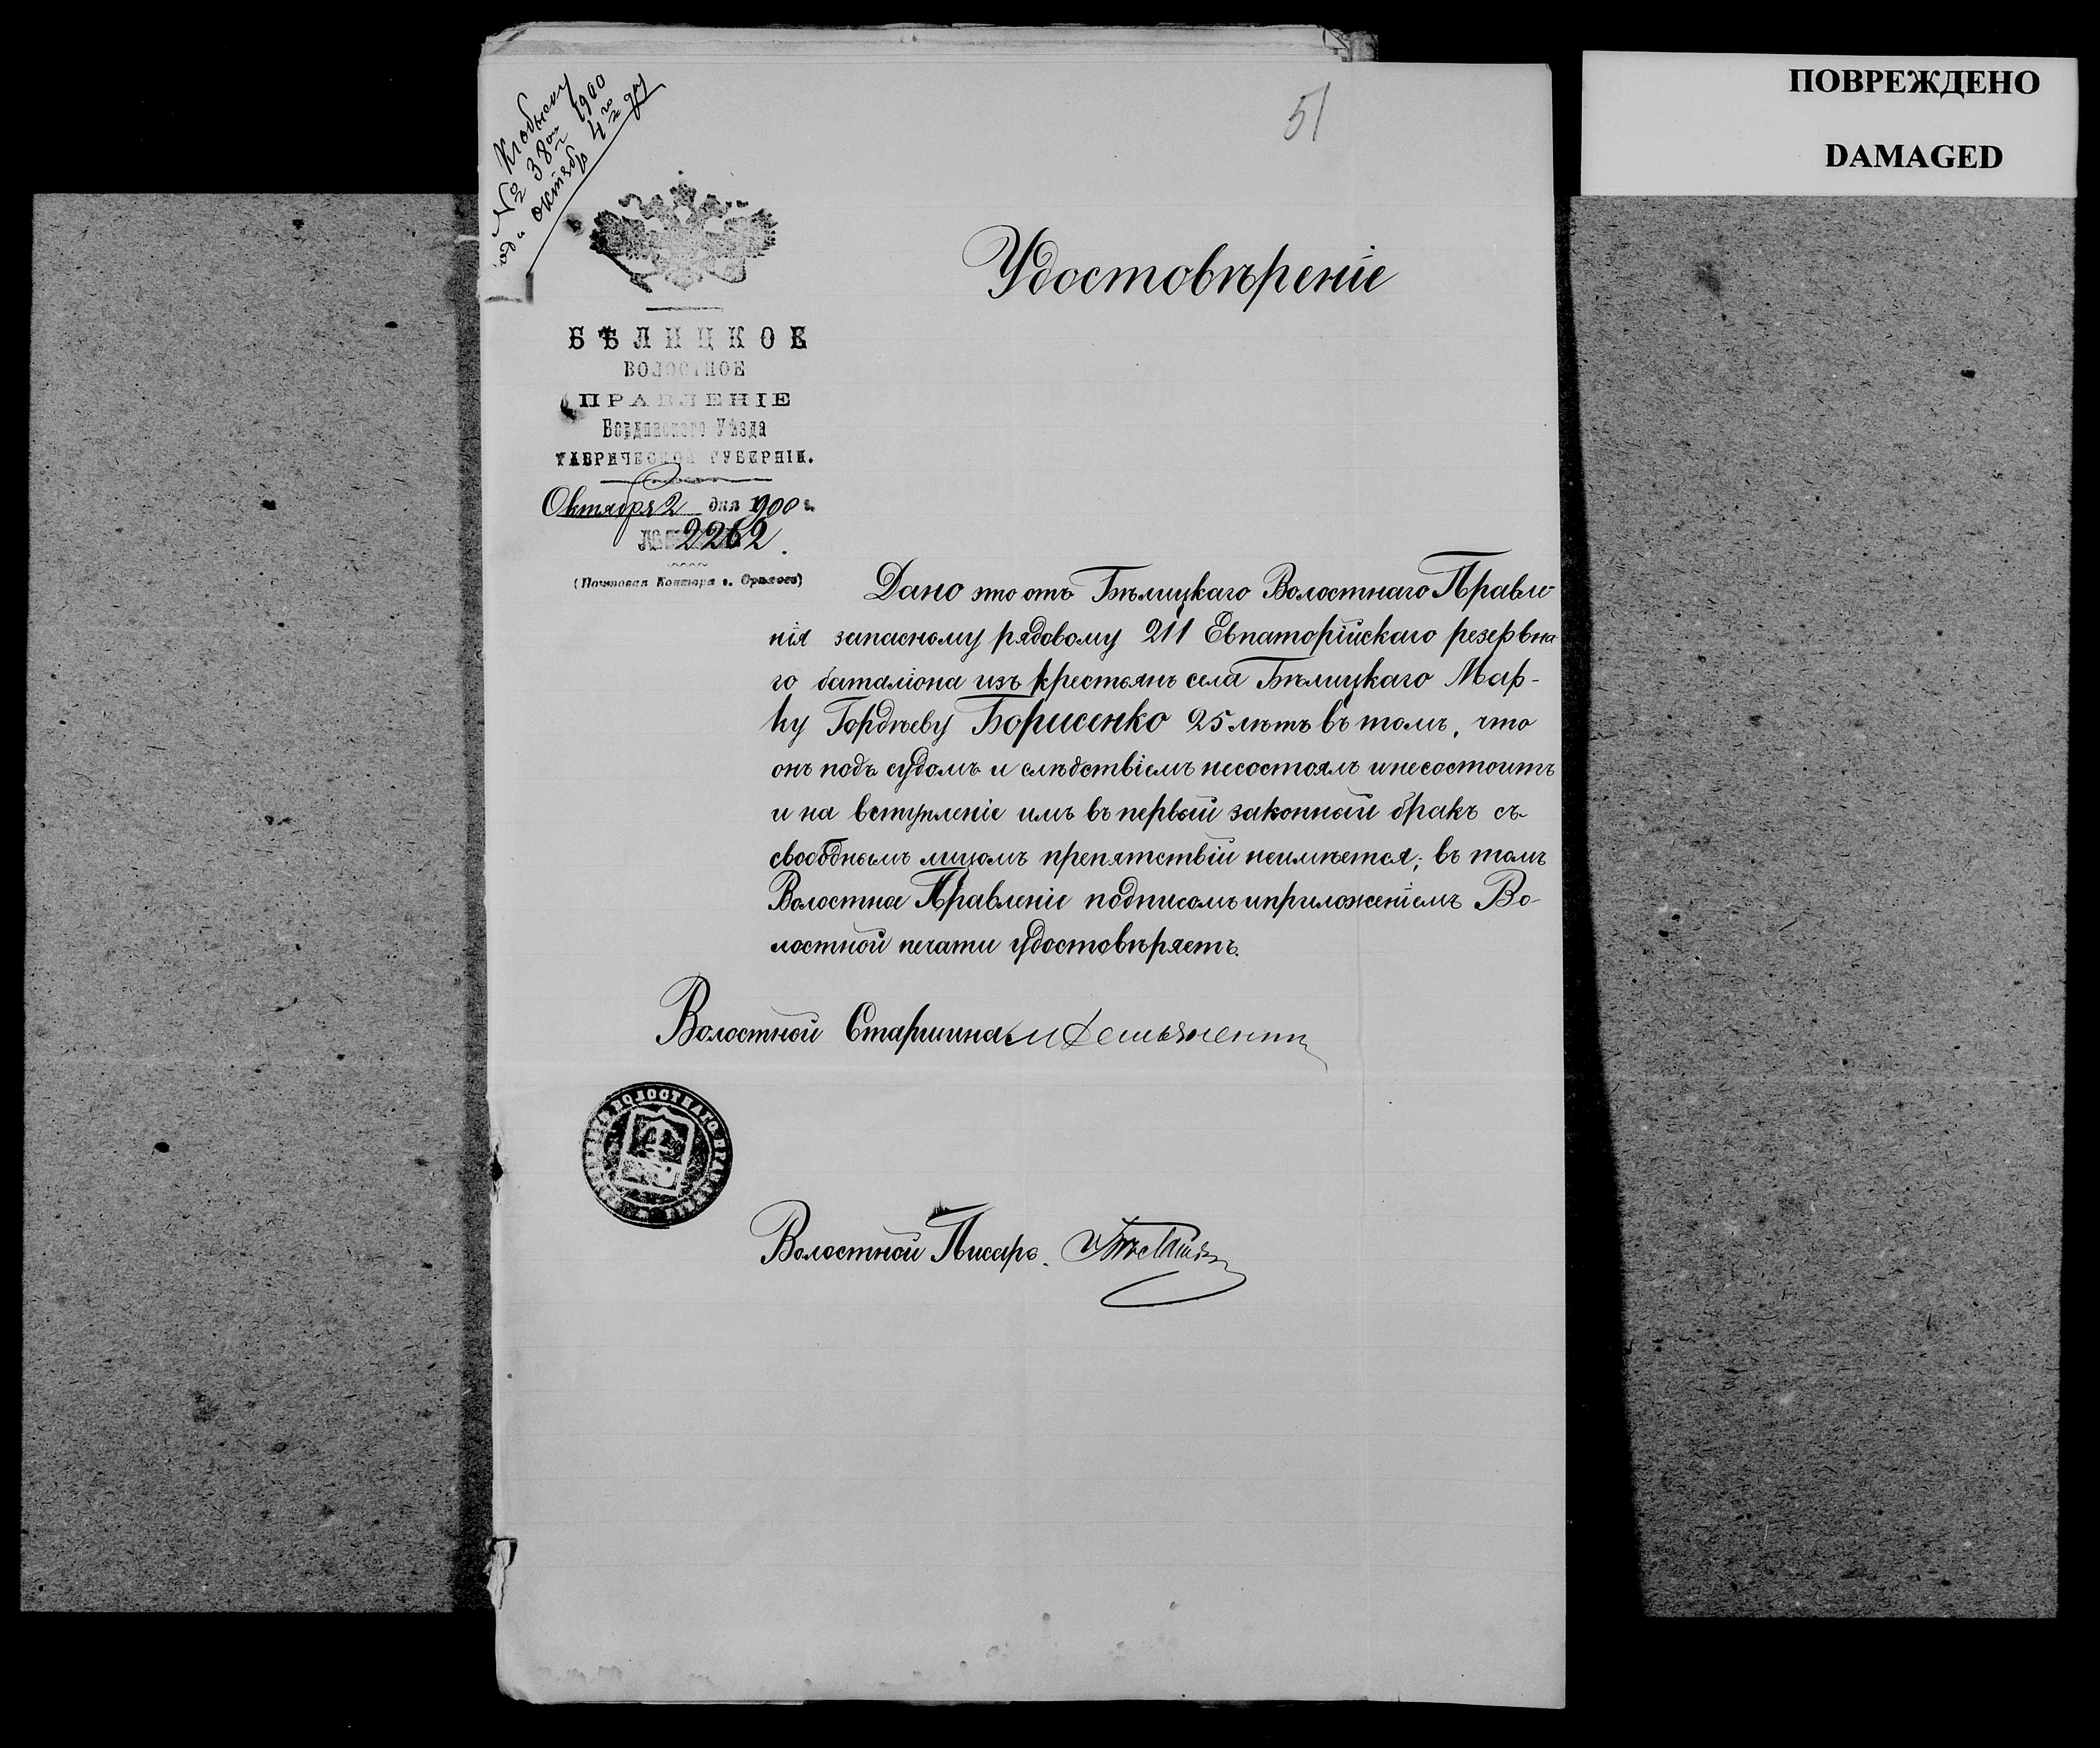 ПОВРЕЖДЕНО
DAMAGED
51
К обыску
№ 38й 1900
год. октябр 4го
Удостовѣреніе
БѢЛИЦКОЕ
ВОЛОСТНОЕ
ПРАВЛЕНІЕ
Бердянскаго Уѣзда
ТАВРИЧЕСКОЙ ГУБЕРНІИ.
Октября 2 дня 1900 г.
№ 2262
(Почтовая Контора с.
Дано это отъ Бѣлицкаго Волостнаго Правле-
нія запасному рядовому 211 Евпаторійскаго резервна
го баталіона изъ крестьянъ села Бѣлицкаго Мар-
ку Гордѣеву Борисенко 25 лѣтъ въ томъ, что
онъ подъ судомъ и слѣдствіемъ несостоялъ и несостоитъ
и на вступленіе имъ въ первый законный бракъ съ
свободнымъ лицомъ препятствій неимѣется; въ томъ
Волостное Правленіе подписомъ и приложеніемъ Во-
лостной печати удостовѣряетъ.
Волостной Старшина
ВОЛОСТНАГО ПРАВЛЕНІЯ
Волостной Писарь.